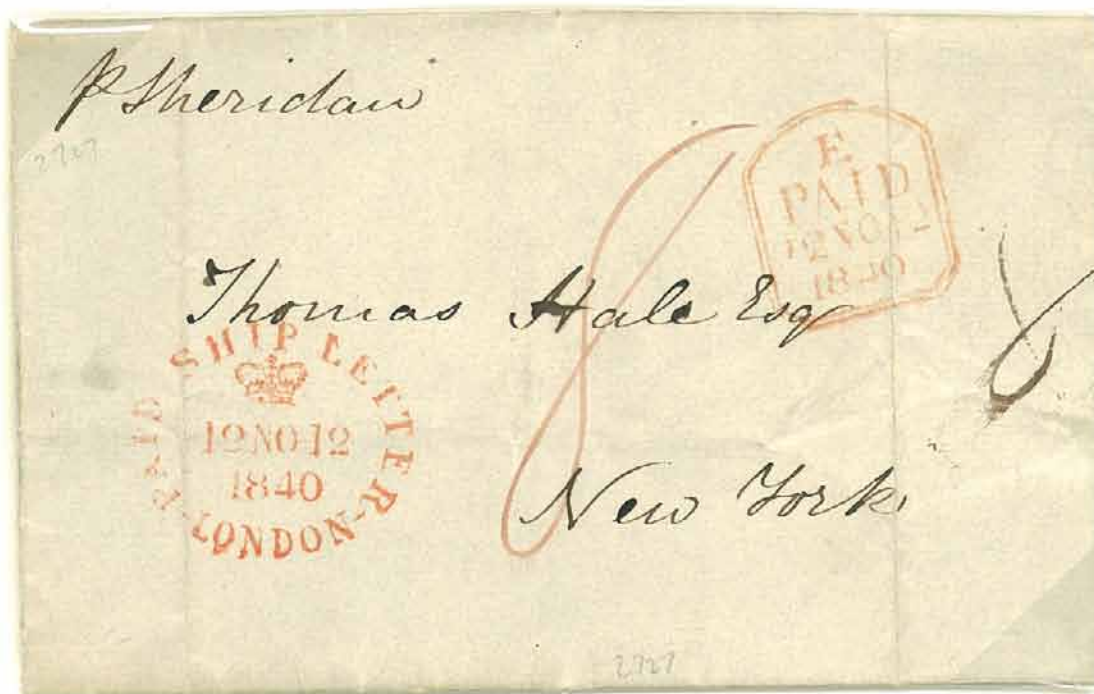 p Sheridan
2727
E
PAID
12 NO 12
1840
8
Thomas Hale Esq
8
PAID SHIP LETTER
12 NO 12
1840
-LONDON-
New York
2727